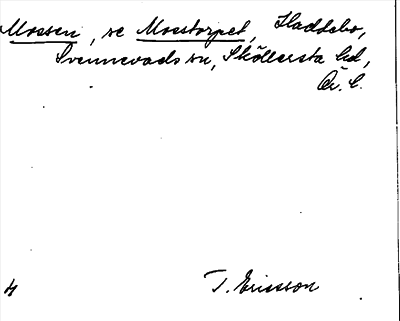 Mossen, se Mosstorpet, Haddebo,
Svennevads sn, Sköllersta hd,
Ör. l.
T. Ericsson